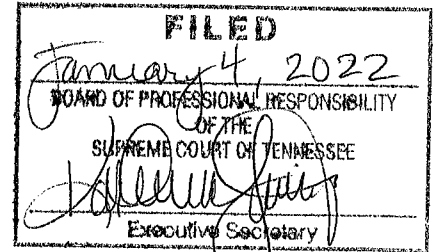 FILED
January 4, 2022
BOARD OF PROFESSIONAL RESPONSIBILITY
OF THE
SUPREME COURT OF TENNESSEE
Executive Secretary